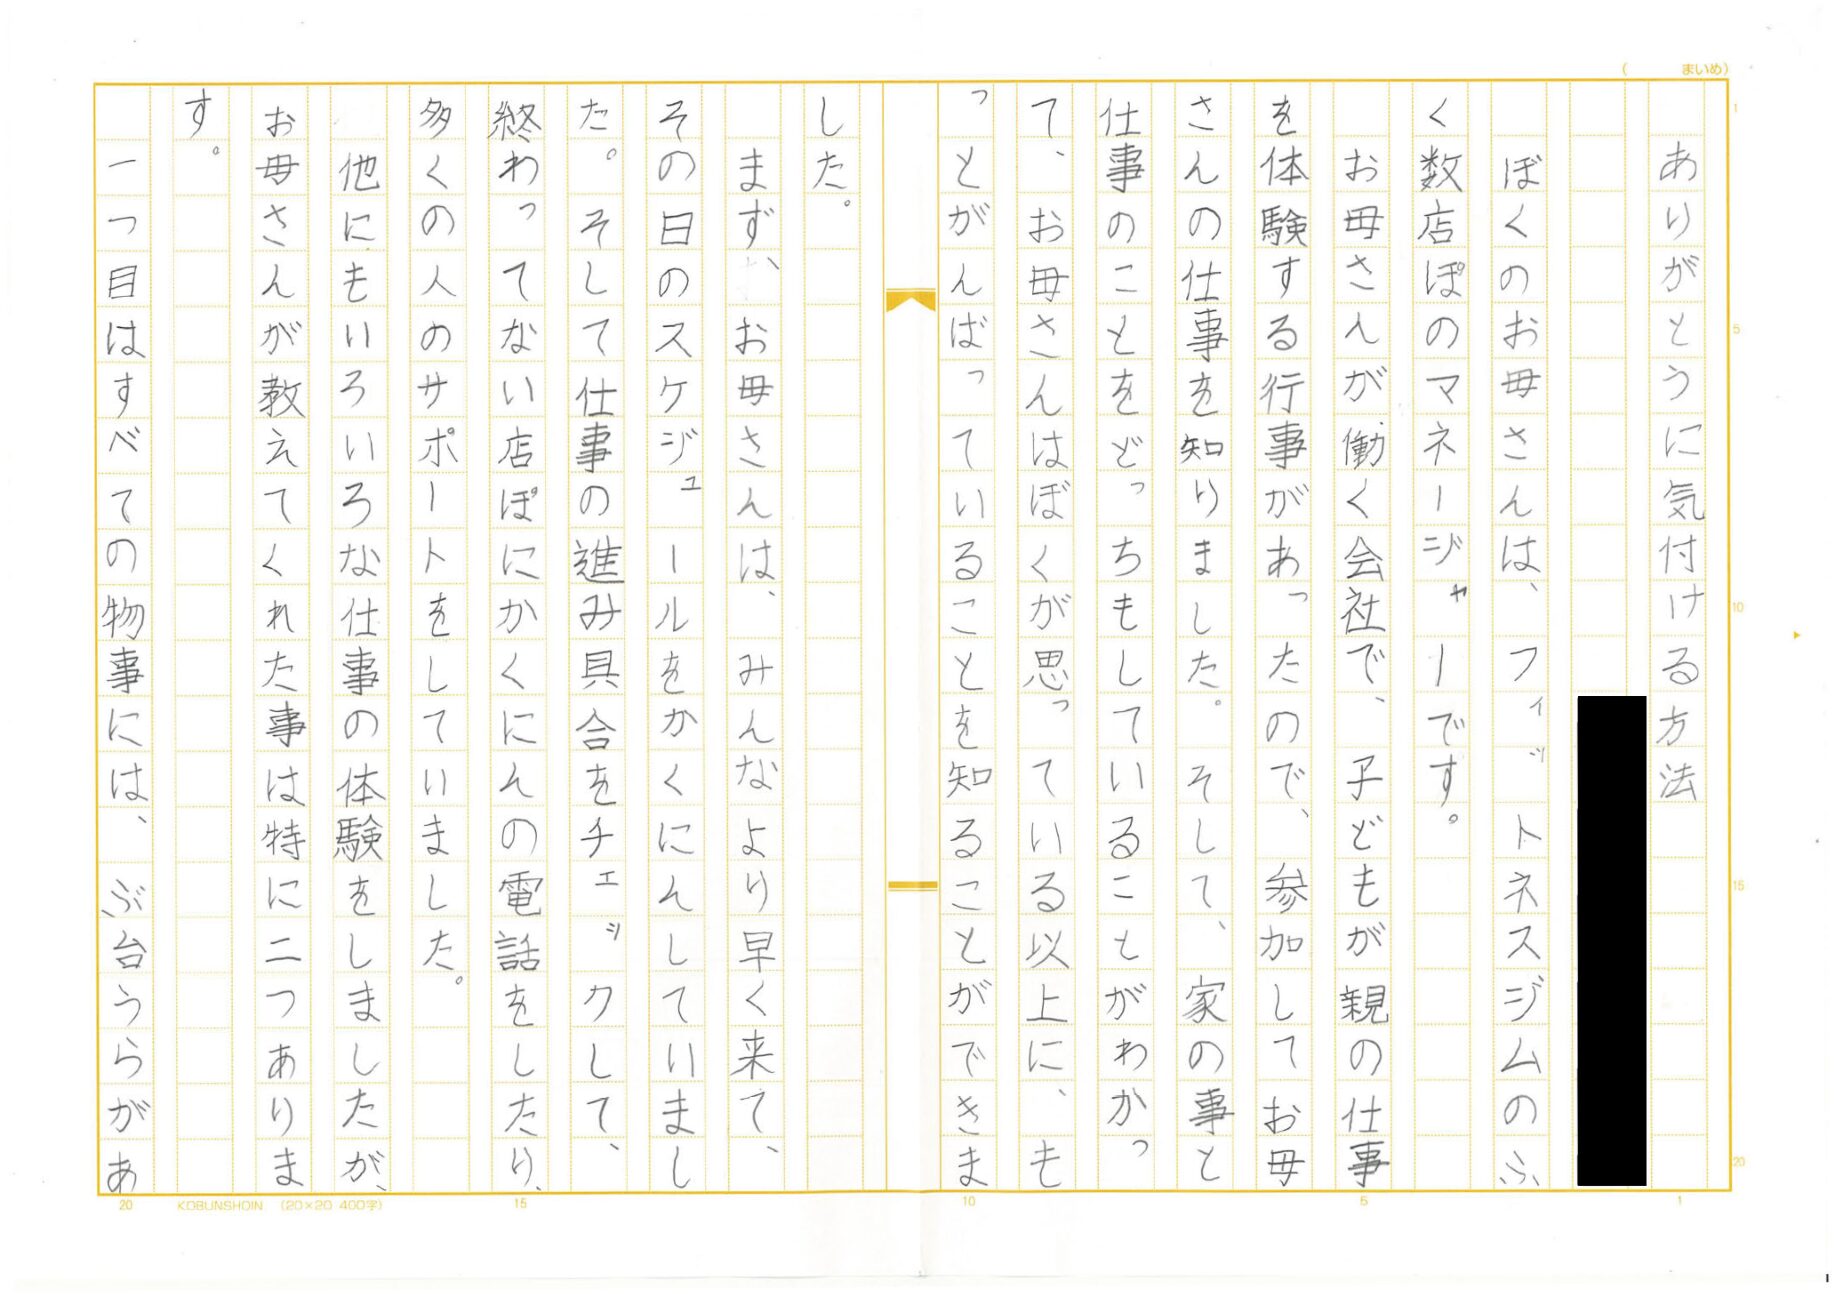 (　　まいめ)
ありがとうに気付ける方法
ぼくのお母さんは、フィットネスジムのふ
く数店ぽのマネージャーです。
お母さんが働く会社で、子どもが親の仕事
を体験する行事があったので、参加してお母
さんの仕事を知りました。そして、家の事と
仕事のことをどっちもしていることがわかっ
て、お母さんはぼくが思っている以上に、も
っとがんばっていることを知ることができま
した。
まず、お母さんは、みんなより早く来て、
その日のスケジュールをかくにんしていまし
た。そして仕事の進み具合をチェックして、
終わってない店ぽにかくにんの電話をしたり、
多くの人のサポートをしていました。
他にもいろいろな仕事の体験をしましたが、
お母さんが教えてくれた事は特に二つありま
す。
一つ目はすべての物事には、ぶ台うらがあ
1
5
10
15
20
1
5
10
15
20
KOBUNSHOIN (20×20 400字)